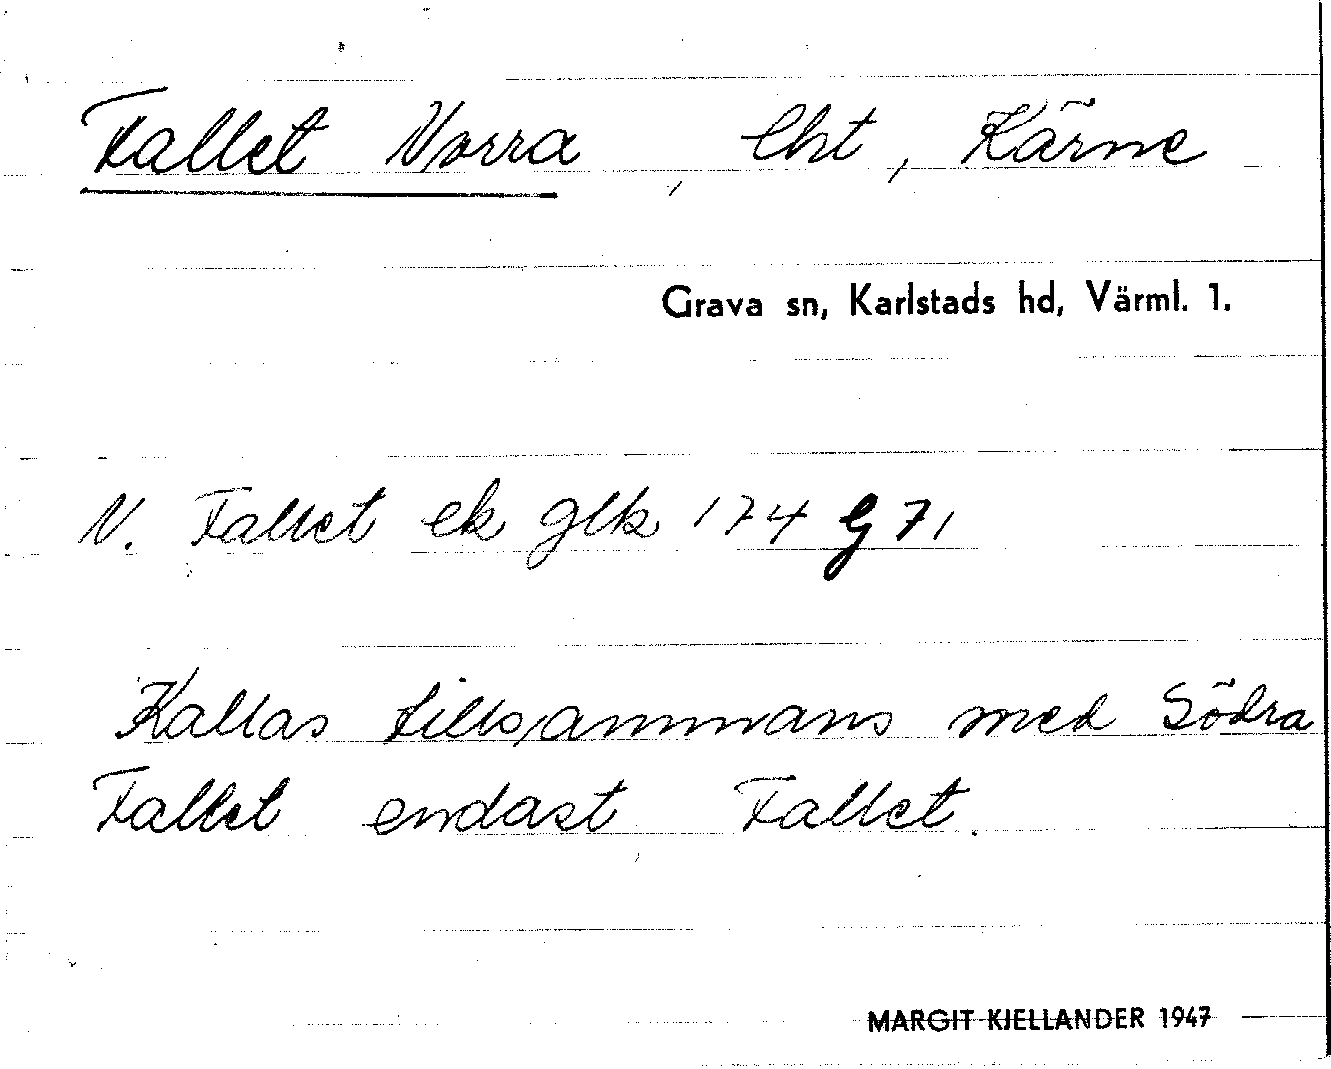 Fallet Norra, lht, Kärne
Grava sn, Karlstads hd, Värml. 1.
N. Fallet ek glk 174 G 71
Kallas tillsammans med Södra
Fallet endast Fallet.
MARGIT KJELLANDER 1947